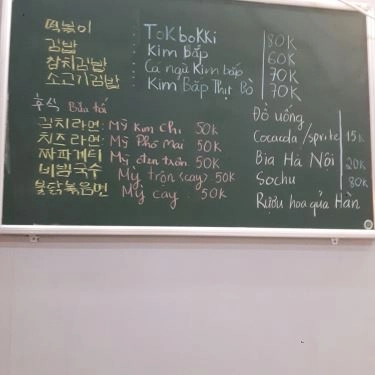 떡볶이 : Tokbokki 80K
김밥 : Kim bắp 60K
참치김밥 : Cá ngừ Kim bắp 70K
소고기김밥 : Kim Bắp Thịt Bò 70K
후식 Bữa tối
김치라면 : Mỹ Kim chi 50K
치즈라면 : Mỹ Phố Mai 50K
짜파게티 Mỹ đen trộn 50K
비빔국수 Mỳ trộn (cay) 50K
불닭볶음면 Mỳ cay 50K
Đồ uống
Cocacola / sprite 15K
Bia Hà Nội 20K
Sochu 80K
Rượu hoa quả Hàn